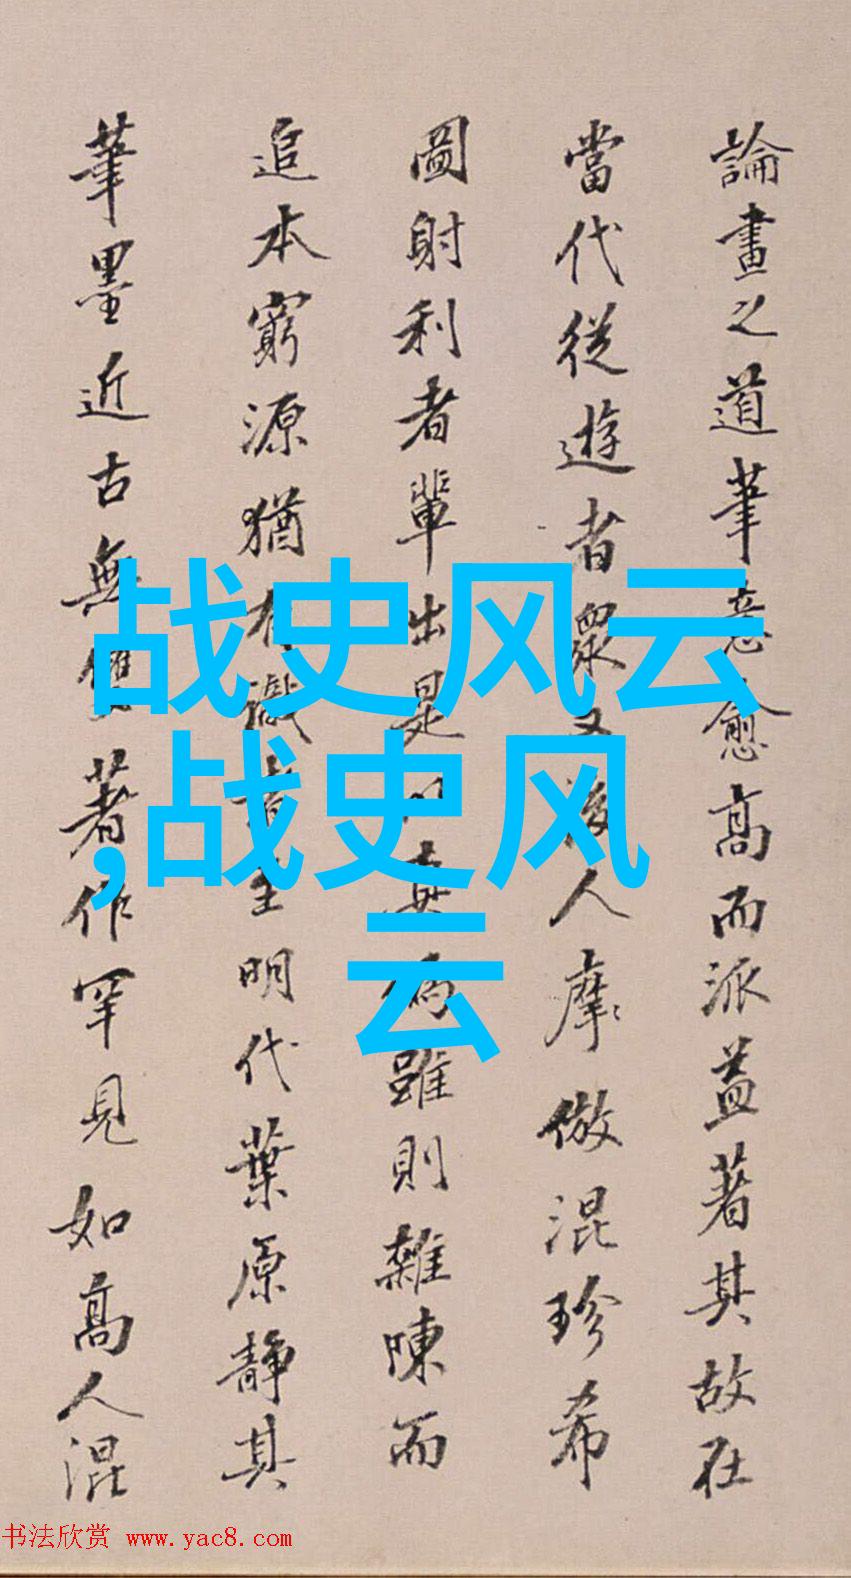 論畫之道筆意愈高而派益著其故在
當代從遊者眾又後人摩倣混珍希
圖射利者輩出是以真偽雖則雜陳而
追本窮源猶有識者至明代葉原靜其
筆墨近古無雙著作罕見如高人混
战史风云
,战史风
云
书法欣赏 www.yac8.com